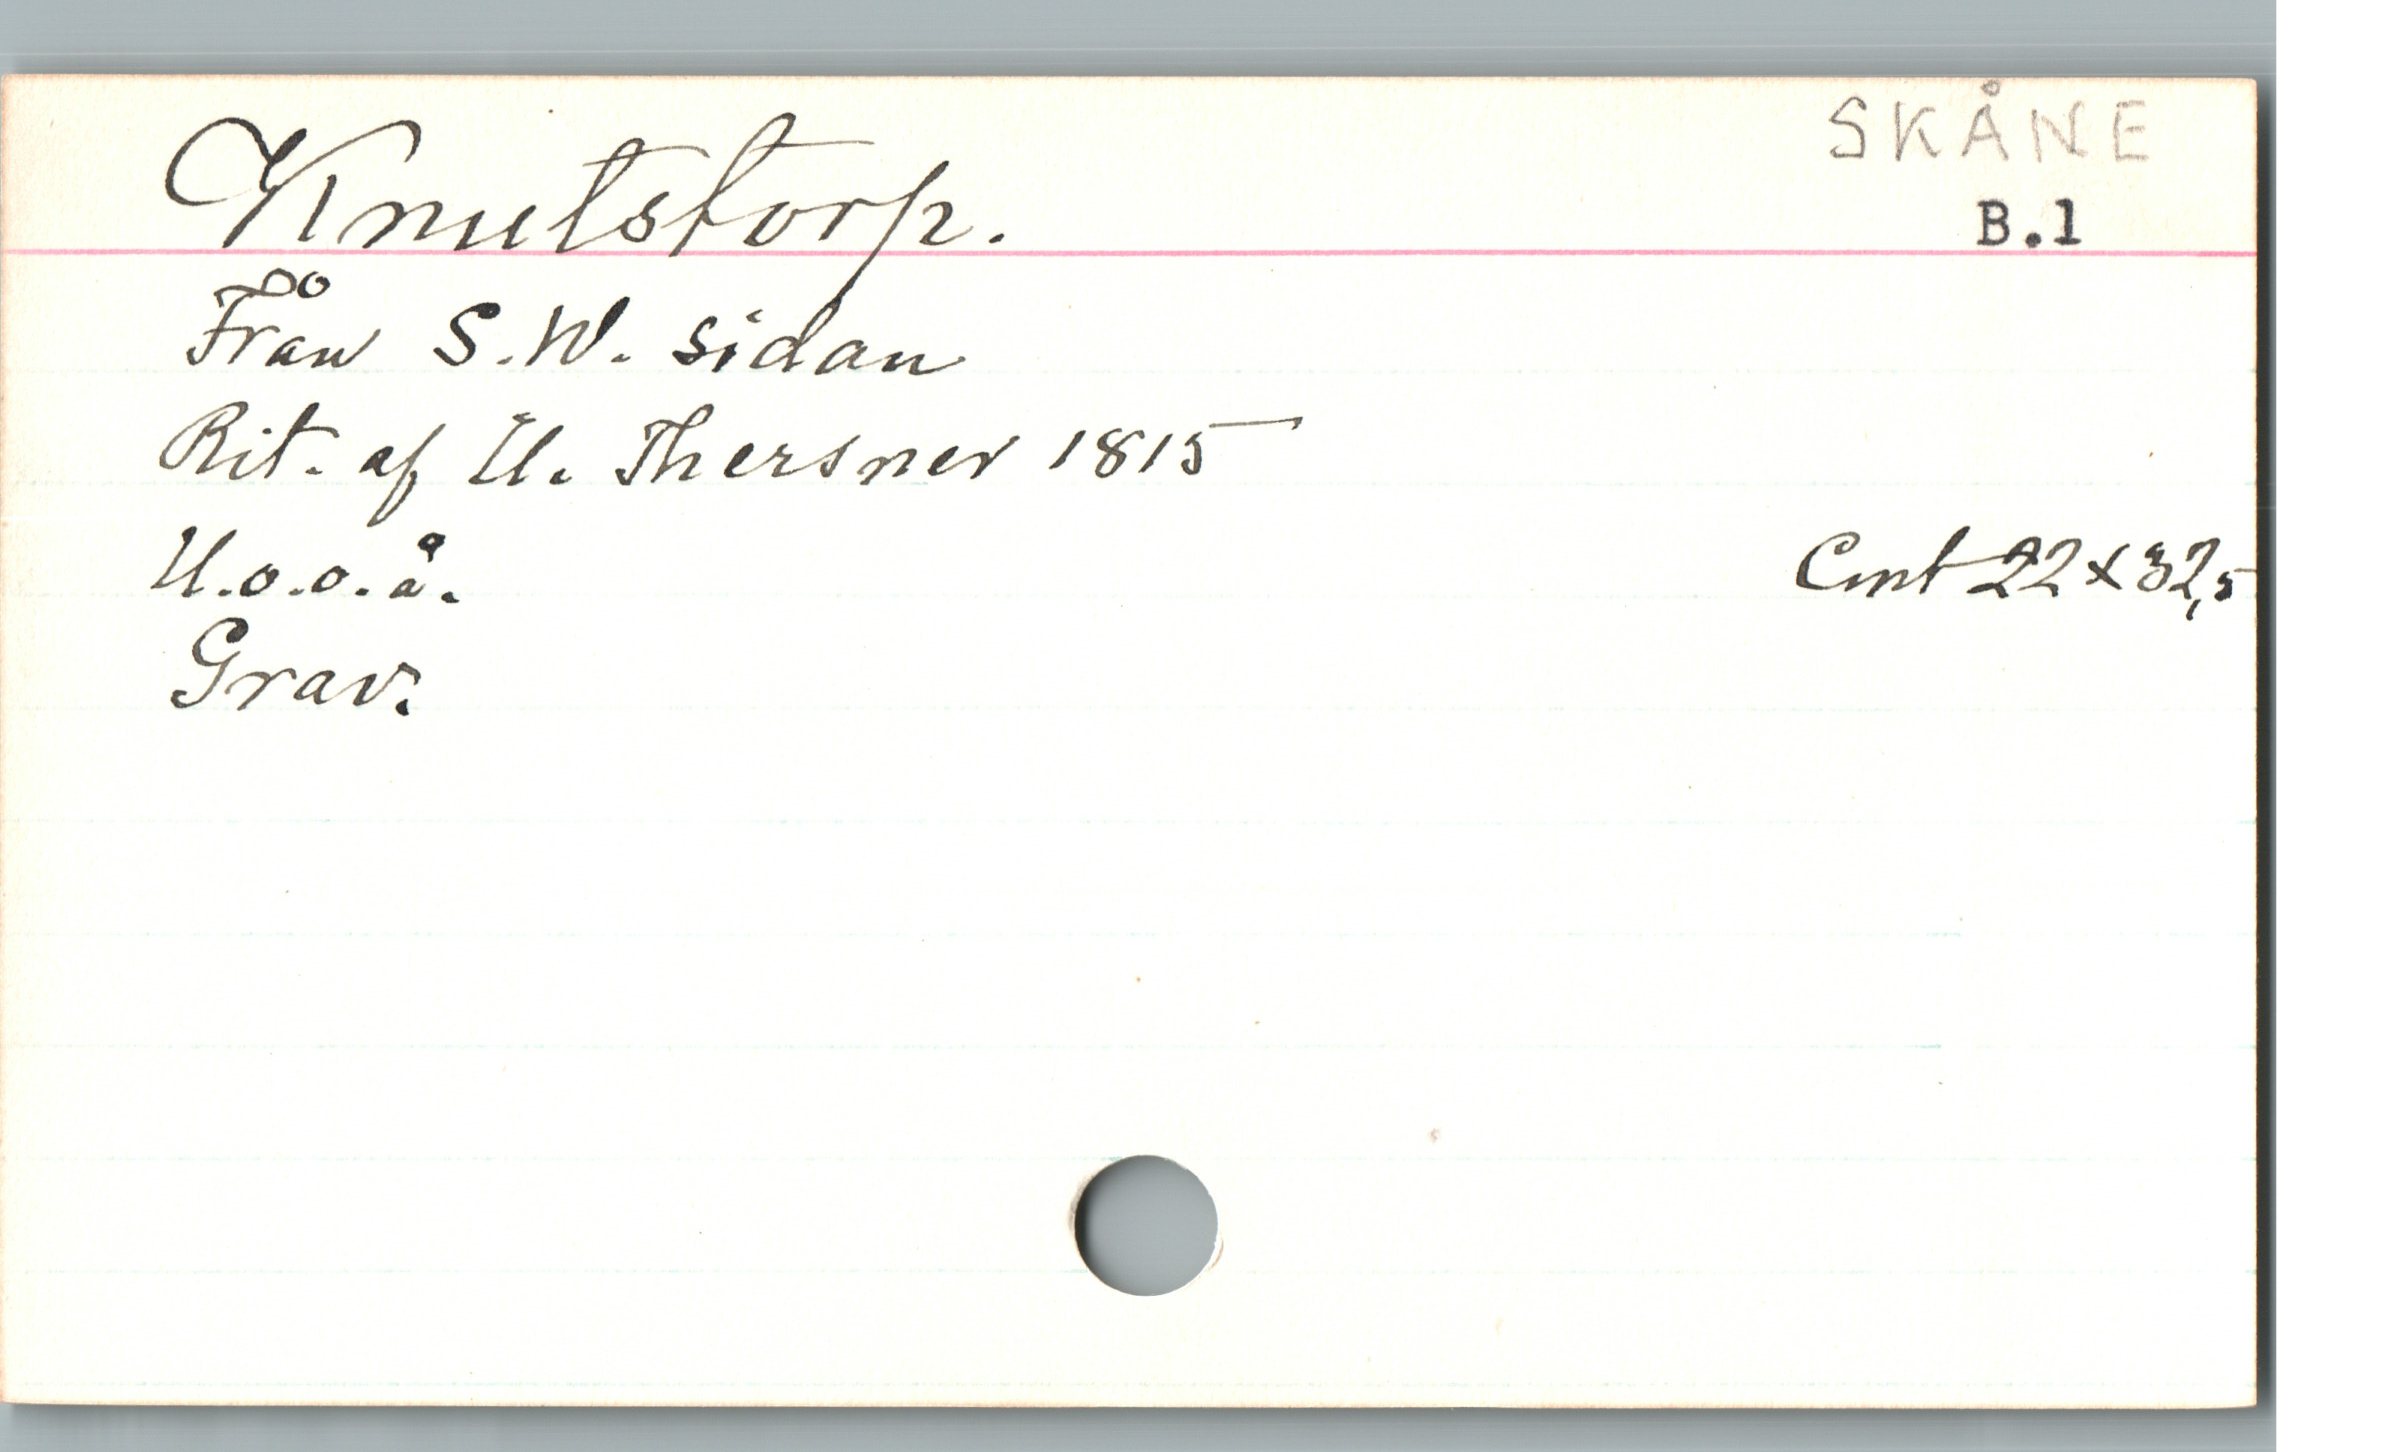 SKÅNE
Knutstorp.
B.1
Från S.W. sidan
Rit. af U. Thersner 1815
U.o.o.å.
Cmt 22 x 32,5
Grav.